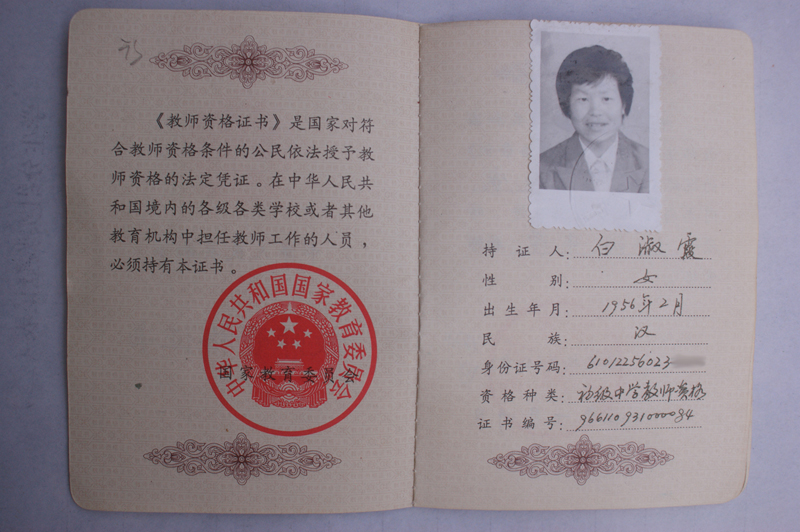 《教师资格证书》是国家对符
合教师资格条件的公民依法授予教
师资格的法定凭证。在中华人民共
和国境内的各级各类学校或者其他
教育机构中担任教师工作的人员，
必须持有本证书。
中华人民共和国国家教育委员会
国家教育委员会
持证人：白淑霞
性别：女
出生年月：1956年2月
民族：汉
身份证号码：61012256023
资格种类：初级中学教师资格
证书编号：96611093100084